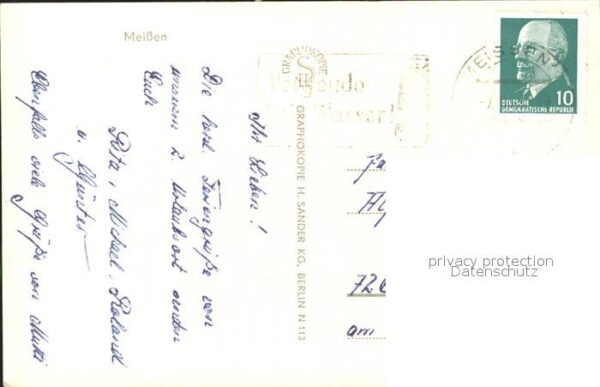 Meißen
Ihr Lieben!
Die herzl. Feriengrüße von
unserem 2. Urlaubsort senden
Euch
Rita, Michael, Roland
u. Günter
Ebenfalls viele Grüße von Mutti
GRAPHOKOPIE
GRAPHOKOPIE H. SANDER KG, BERLIN N 113
Vergeude
Wasser!
MEISSEN
DEUTSCHE
DEMOKRATISCHE REPUBLIK
10
726
am
privacy protection
Datenschutz